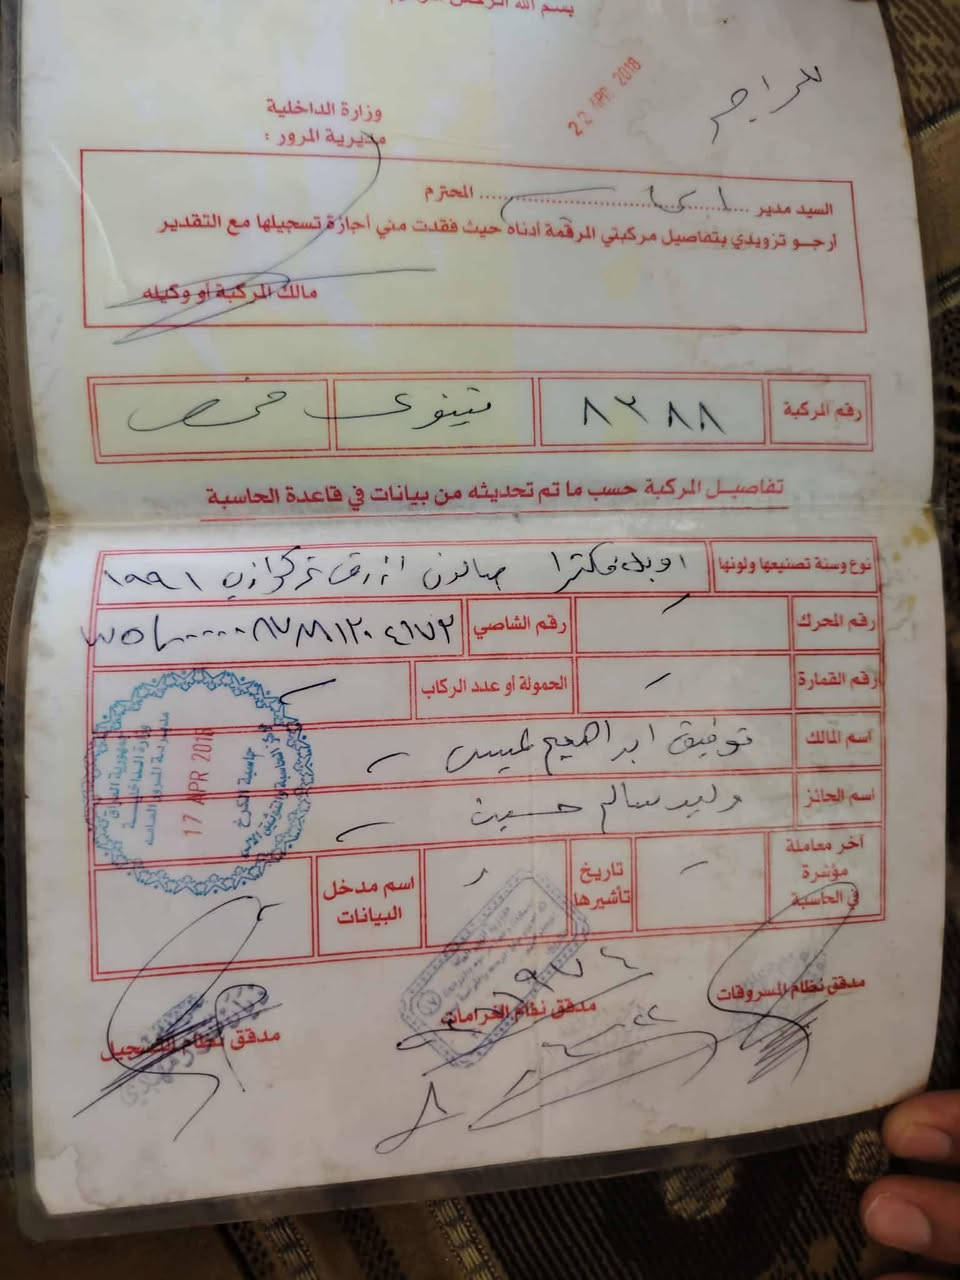 بسم الله الرحمن الرحيم
22 APR 2018
وزارة الداخلية
مديرية المرور :
السيد مدير ........ المحترم
أرجو تزويدي بتفاصيل مركبتي المرقمة أدناه حيث فقدت مني أجازة تسجيلها مع التقدير
مالك المركبة أو وكيله
رقم المركبة ٨٢٨٨ نينوى
تفاصيل المركبة حسب ما تم تحديثه من بيانات في قاعدة الحاسبة
نوع وسنة تصنيعها ولونها اوبل فكترا صالون ازرق تركوازي ١٩٩١
رقم المحرك رقم الشاصي
رقم القمارة الحمولة أو عدد الركاب
اسم المالك توفيق ابراهيم خميس
اسم الحائز وليد سالم حسين
آخر معاملة مؤشرة في الحاسبة تاريخ تأشيرها اسم مدخل البيانات
جمهورية العراق
وزارة الداخلية
مديرية المرور العامة
17 APR 201
مدقق نظام المسروقات
مدقق نظام الغرامات
مدقق نظام التسجيل